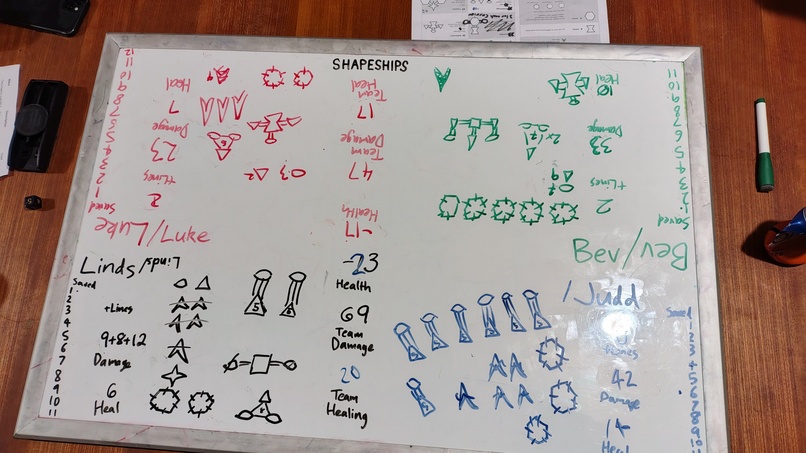 SHAPESHIPS
12
11
10
9
8
7
6
5
4
3
2
1
Saved
Heal
7
Damage
23
+Lines
2
Luke/Luke
Team
Heal
17
Team
Damage
47
Health
-17
11
10
9
8
7
6
5
4
3
2
1
Saved
Heal
10
Damage
33
+Lines
2
Bev/Bev
Linds/Linds
Saved
1
2
3
4
5
6
7
8
9
10
11
+Lines
9+8+12
Damage
6
Heal
5
6
4
-23
Health
69
Team
Damage
20
Team
Healing
/Judd
Saved
1
2
3
4
5
6
7
8
9
10
Lines
42
Damage
14
Heal